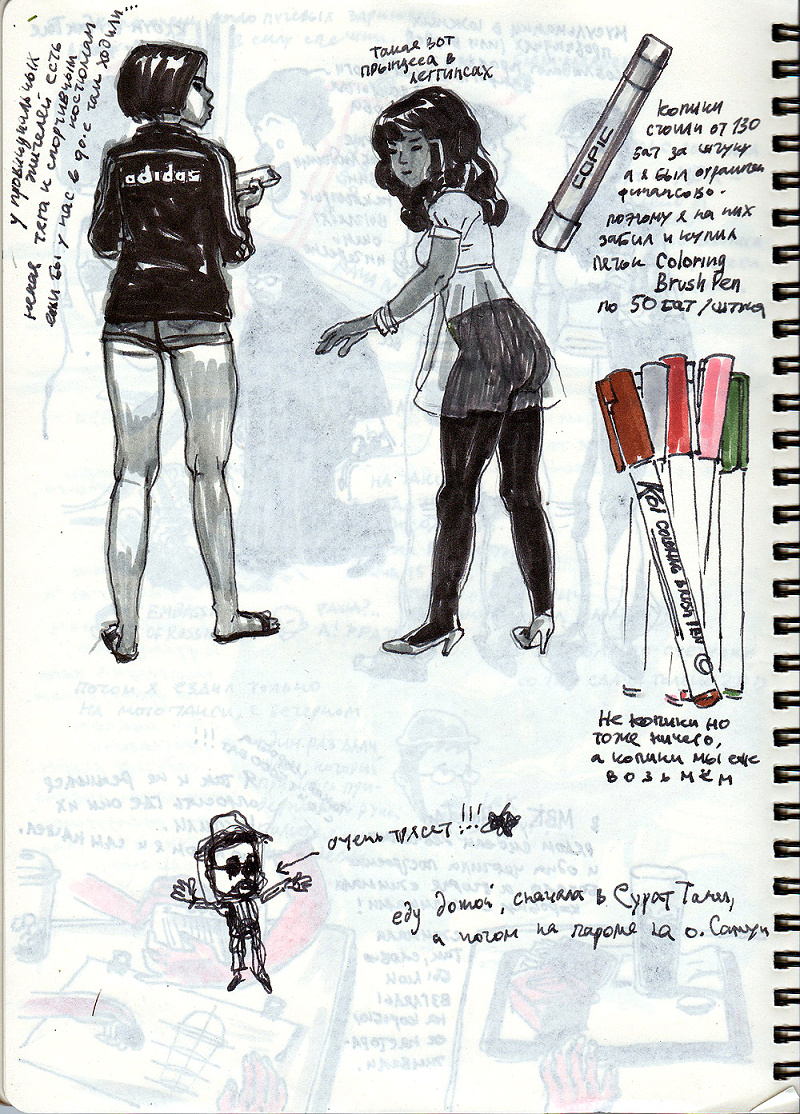 у провинциальных
жителей есть
некая тяга к спортивным
костюмам
если бы у нас в 90-е так ходили...
adidas
такая вот
прынцеса в
леггинсах
COPIC
копики
стоили от 130
бат за штуку
а я был ограничен
финансово.
поэтому я на них
забил и купил
Coloring
Brush Pen
по 50 бат/штука
Koi COLORING BRUSH PEN
Не копики но
тоже ничего,
а копики мы ещё
возьмём
очень трясет!!!
еду домой, сначала в Сурат Тани,
а потом на пароме на о. Самуи